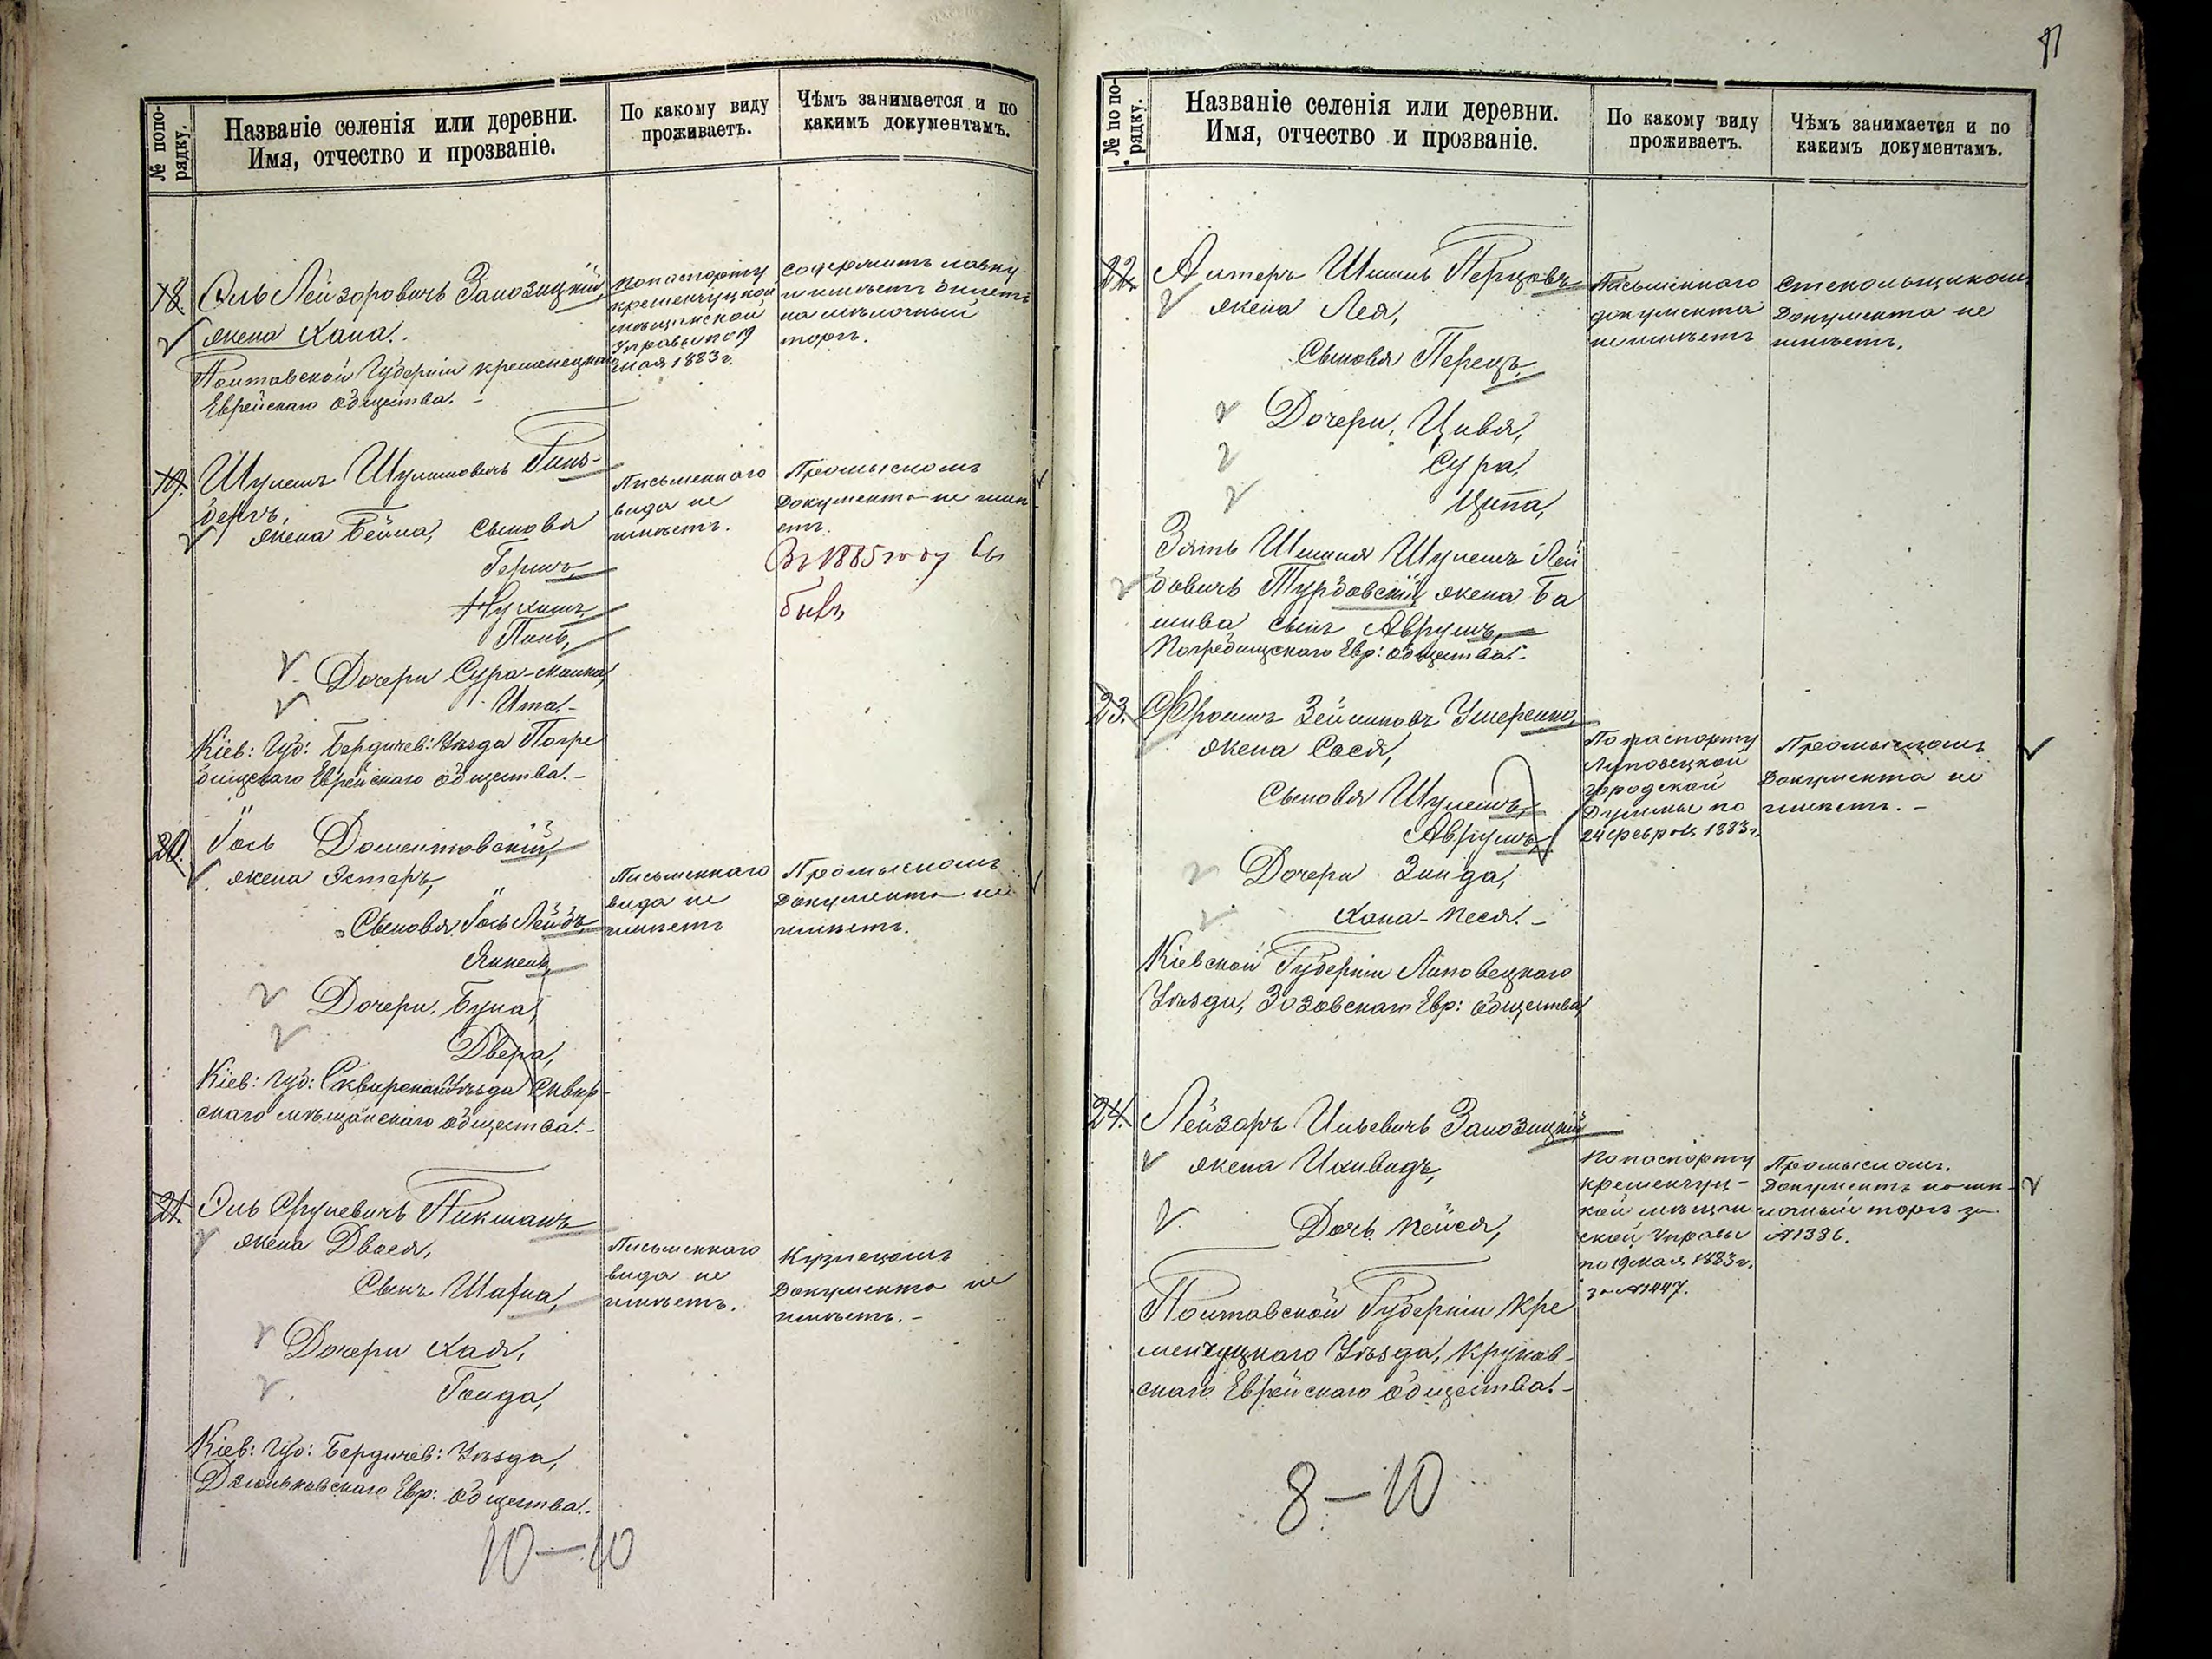 № попо-
рядку.
Названіе селенія или деревни.
Имя, отчество и прозваніе.
По какому виду
проживаетъ.
Чѣмъ занимается и по
какимъ документамъ.
18.
Эль Лейзоровичъ Заполицкій,
жена Хана.
Полтавской Губерніи кременецкаго
Еврейскаго общества. -
По паспорту
кременчуцкой
мѣщанской
Управы по 19
мая 1883 г.
Содержитъ лавку
и имѣетъ билетъ
на мѣлочный
торгъ.
19.
Шулемъ Шулимовичъ Гинз-
бергъ,
жена Бейла, сыновья
Гершъ,
Нухимъ,
Пинь,
Дочери Сура-малка,
Ита. -
Кіев: Губ: Бердичев: Уѣзда Погре
бищскаго Еврейскаго общества. -
Письменнаго
вида не
имѣетъ.
Промысломъ
Документа не имѣ
етъ.
Въ 1885 году вы
былъ
20.
Іось Доментовскій,
жена Эстеръ,
Сыновья Іось Лейбъ,
Янкель,
Дочери. Буна,
Двера,
Кіев: губ: Сквирскаго Уѣзда Сквир-
скаго мѣщанскаго общества. -
Письменнаго
вида не
имѣетъ
Промысломъ
Документа не
имѣетъ.
21.
Эль Срулевичъ Пикманъ
жена Двося,
Сынъ
Дочери Хая,
Голда,
Кіев: губ: Бердичев: Уѣзда,
Дзюньковскаго Евр: общества. -
Письменнаго
вида не
имѣетъ.
Кузнецомъ
Документа не
имѣетъ. -
10-10
№ по по-
рядку.
Названіе селенія или деревни.
Имя, отчество и прозваніе.
По какому виду
проживаетъ.
Чѣмъ занимается и по
какимъ документамъ.
22.
Алтеръ Перцовъ
жена Лея,
Сыновья Перецъ,
Дочери, Цивья,
Сура,
Ципа,
Зять Шулемъ Лей
бовичъ Турбовскій жена Ба
шива сынъ Аврумъ,
Погребищскаго Евр: общества. -
Письменнаго
документа
не имѣетъ
Стекольщикомъ
Документа не
имѣетъ.
23.
Фроимъ Зеймановъ Ушеренко,
жена Сося,
Сыновья Шулемъ,
Аврумъ
Дочери Зинда,
Хана-Песя. -
Кіевской Губерніи Липовецкаго
Уѣзда, Зозовскаго Евр: общества,
По паспорту
Липовецкой
городской
Думы по
24 февраля 1883 г.
Промысломъ
Документа не
имѣетъ. -
24.
Лейзоръ Ильевичъ Заполицкій
жена Ихивидъ,
Дочь Пейся,
Полтавской Губерніи Кре
менчуцкаго Уѣзда, Круков-
скаго Еврейскаго общества. -
По паспорту
кременчуц-
кой мѣщан
ской Управы
по 19 мая 1883 г.
за № 1447.
Промысломъ.
Документъ на мѣ-
лочный торгъ за
№ 1386.
8-10